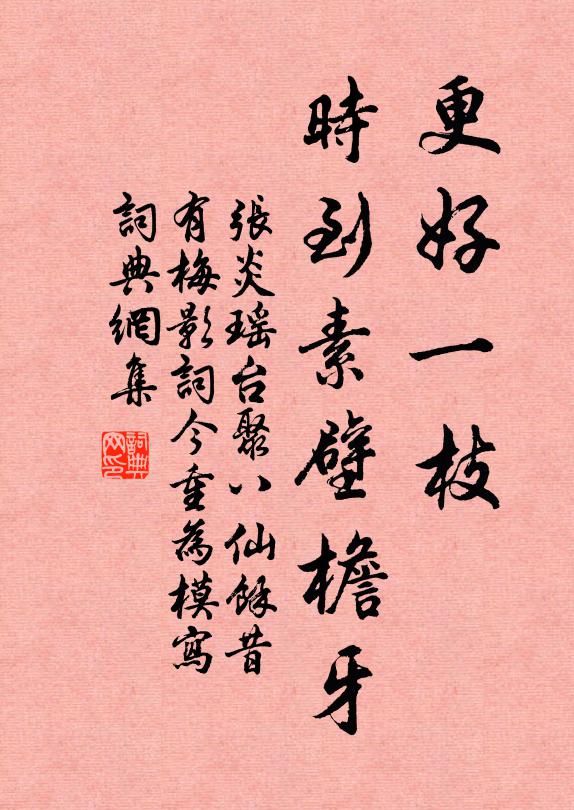 更好一枝
時到素壁檐牙
張炎瑶台聚八仙餘昔
有梅影詞今重為模寫
詞典網集
詞典网印